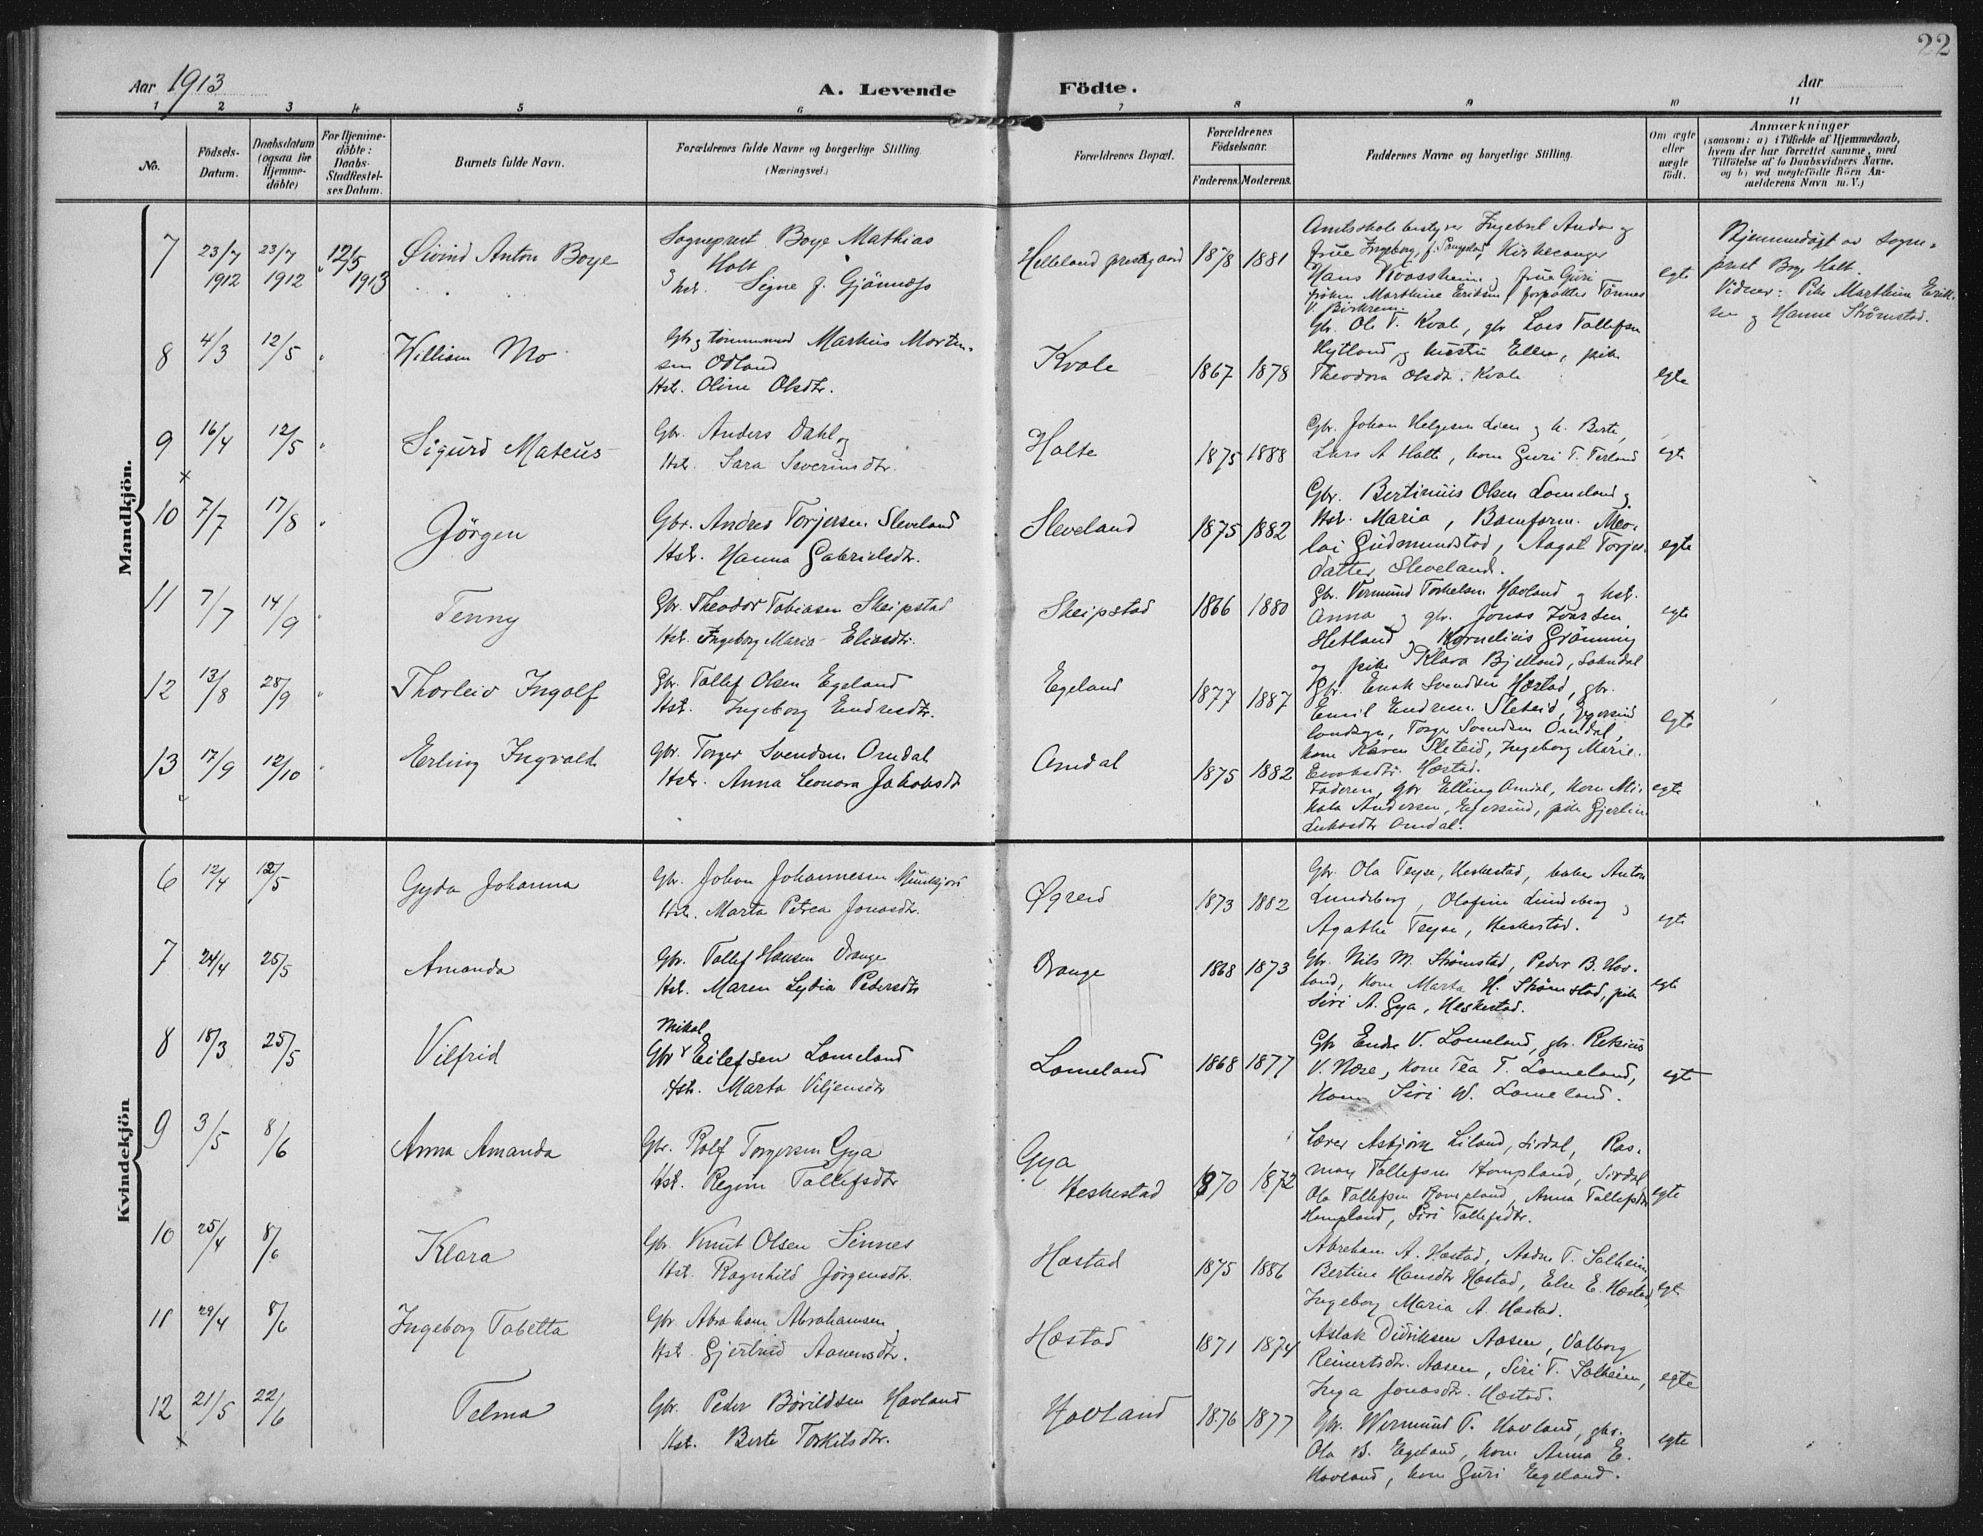 22
Aar 1913
A. Levende Födte.
Aar
1 2 3 4 5 6 7 8 9 10 11
No.
Födsels-Datum.
Daabsdatum (ogsaa for Hjemme-döbte)
For Hjemme-döbte: Daabs-Stadfæstel-ses Datum.
Barnets fulde Navn.
Forældrenes fulde Navne og borgerlige Stilling (Næringsvei.)
Forældrenes Bopæl.
Forældrenes Födselsaar.
Faderens. Moderens.
Faddernes Navne og borgerlige Stilling.
Om ægte eller uægte født.
Anmærkninger
(saasom: a) i Tilfælde af Hjemmedaab,
hvem der har forrettet samme, med
Tilföielse af to Daabsvidners Navne,
og b) ved uægtefödte Börn An-
melderens Navn m. V.)
Mandkjön.
7 23/7 1912 23/7 1912 12/5 1913 Øivind Anton Boye
Sogneprest Boye Mathias
Holt
hst. Signe f. Gjønnæss
Helleland prestgaard 1878 1881
frue Ingeborg, Kirkesanger
Hans og frue Guri
frøken Marthine Eriksen, forpakter Tønnes
V. Birkrem.
egte
Hjemmedøpt av sogne-
prest Boye Holt.
Vidner: Pike Marthine Erik-
sen og Hanna Strømstad.
8 4/3 12/5 William Mo
Gbr og tømmermand Markus Morten-
sen Odland
Hst. Oline Olsdtr.
Kvale 1867 1878
Gbr. Ole T. Kvale, gbr Lars Tollefsen
Hytland og hustru Ellen, pike
Theodora Olsdtr. Kvale
egte
9 16/4 12/5 Sigurd Mateus
Gbr. Anders Dahl og
Hst. Sara Severinsdtr.
Holte 1875 1888
Gbr. Johan Helgesen Lien og h. Berte,
Lars A Holte, kone Guri T. Terland
egte
10 7/7 17/8 Jörgen
Gbr. Andres Torjersen Sleveland
Hst. Hanna Gabrielsdtr.
Sleveland 1875 1882
Gbr. Bertinius Olsen Lomeland og
Hst. Maria, Barnform.
Gudmundstad, Aagot Torjes-
datter Sleveland.
egte
11 7/7 14/9 Tenny
Gbr. Theodor Tobiasen Skeipstad
Hst. Ingeborg Maria Eliasdtr.
Skeipstad 1866 1880
Gbr. Vermund Torkelsen Havland og hst.
Anna og gbr. Jonas Ivarsen
Hetland og Kornelius Grönning
og pike Klara Bjelland, Sokndal
egte
12 13/8 28/9 Thorleiv Ingolf
Gbr. Tollef Olsen Egeland
Hst. Ingeborg Endresdtr.
Egeland 1877 1887
Gbr. Enok Svendsen Hæstad, gbr.
Emil Endresen Sleteid, Egersund
landsogn, Torger Svendsen Omdal,
kone Karen Sleteid, Ingeborg Marie
Enoksdtr. Hæstad.
egte
13 17/9 12/10 Erling Ingvald
Gbr. Torger Svendsen Omdal
Hst. Anna Leonora Jakobsdt
Omdal 1875 1882
Faderen, gbr Elling Omdal, kone
Andersen, Egersund, pike
Omdal.
egte
Kvindekjön
6 12/4 12/5 Gyda Johanna
Gbr. Johan Johannessen
Hst. Marta Petrea Jonasdtr.
Øgreid 1873 1882
Gbr. Ola Teyse, Heskestad, baker Anton
Lundeberg, Olefine Lundeberg og
Agathe Teyse, Heskestad.
egte
7 24/4 25/5 Amanda
Gbr. Tollef Hansen Drange
Hst. Maren Lydia Pedersdtr
Drange 1868 1873
Gbr. Nils M. Strømstad, Peder B. Hov-
land, kone Marta H. Strømstad, pike
Siri A. Gya, Heskestad.
egte
8 18/3 25/5 Vilfrid
Mikal
Gbr Eilefsen Lomeland
Hst. Marta Viljensdtr
Lomeland 1868 1877
Gbr Endre V. Lomeland, gbr.
V. Nese, kone Tea T. Lomeland,
Kone Siri W. Lomeland.
egte
9 3/5 8/6 Anna Amanda
Gbr. Rolf Torgersen Gya
Hst. Regine Tollefsdtr
Gya
Heskestad 1870 1872
Lærer Asbjørn Liland, Sirdal, Ras-
mus Tollefsen Kompland, Sirdal
Ola Tollefsen Kompland, Anna Tollefsdtr
Kompland, Siri Tollefsdtr.
egte
10 25/4 8/6 Klara
Gbr. Knut Olsen Sinnes
Hst. Ragnhild Jørgensdtr.
Hæstad 1875 1886
Abraham A. Hæstad, Aadne T. Solheim,
Bertine Hansdtr Hæstad, Else E. Hæstad,
Ingeborg Maria A. Hæstad.
egt
11 29/4 8/6 Ingeborg Tabetta
Gbr Abraham Abrahamsen
Hst. Gjertrud Aanensdtr.
Hæstad 1871 1874
Aslak Didriksen Aasen, Valborg
Reinertsdtr. Aasen, Siri T. Solheim,
Inga Jonasdtr. Hæstad.
egte
12 21/5 22/6 Telma
Gbr. Peder Börildsen Havland
Hst. Berte Torkilsdtr.
Hovland 1876 1877
Gbr. Wermund T. Havland, gbr.
Ola B. Egeland, kone Anna E.
Havland, kone Guri Egeland.
egte